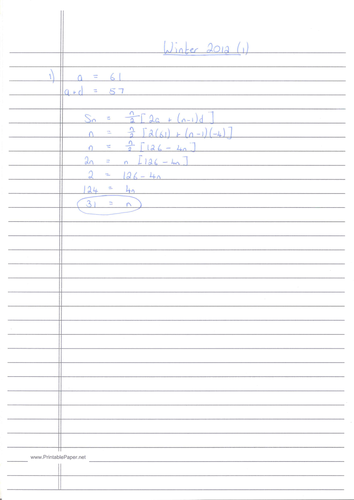 Winter 2012 (1)
1) a = 61
a+d = 57
Sn = n/2 [2a + (n-1)d]
n = n/2 [2(61) + (n-1)(-4)]
n = n/2 [126 - 4n]
2n = n [126 - 4n]
2 = 126 - 4n
124 = 4n
31 = n
www.PrintablePaper.net